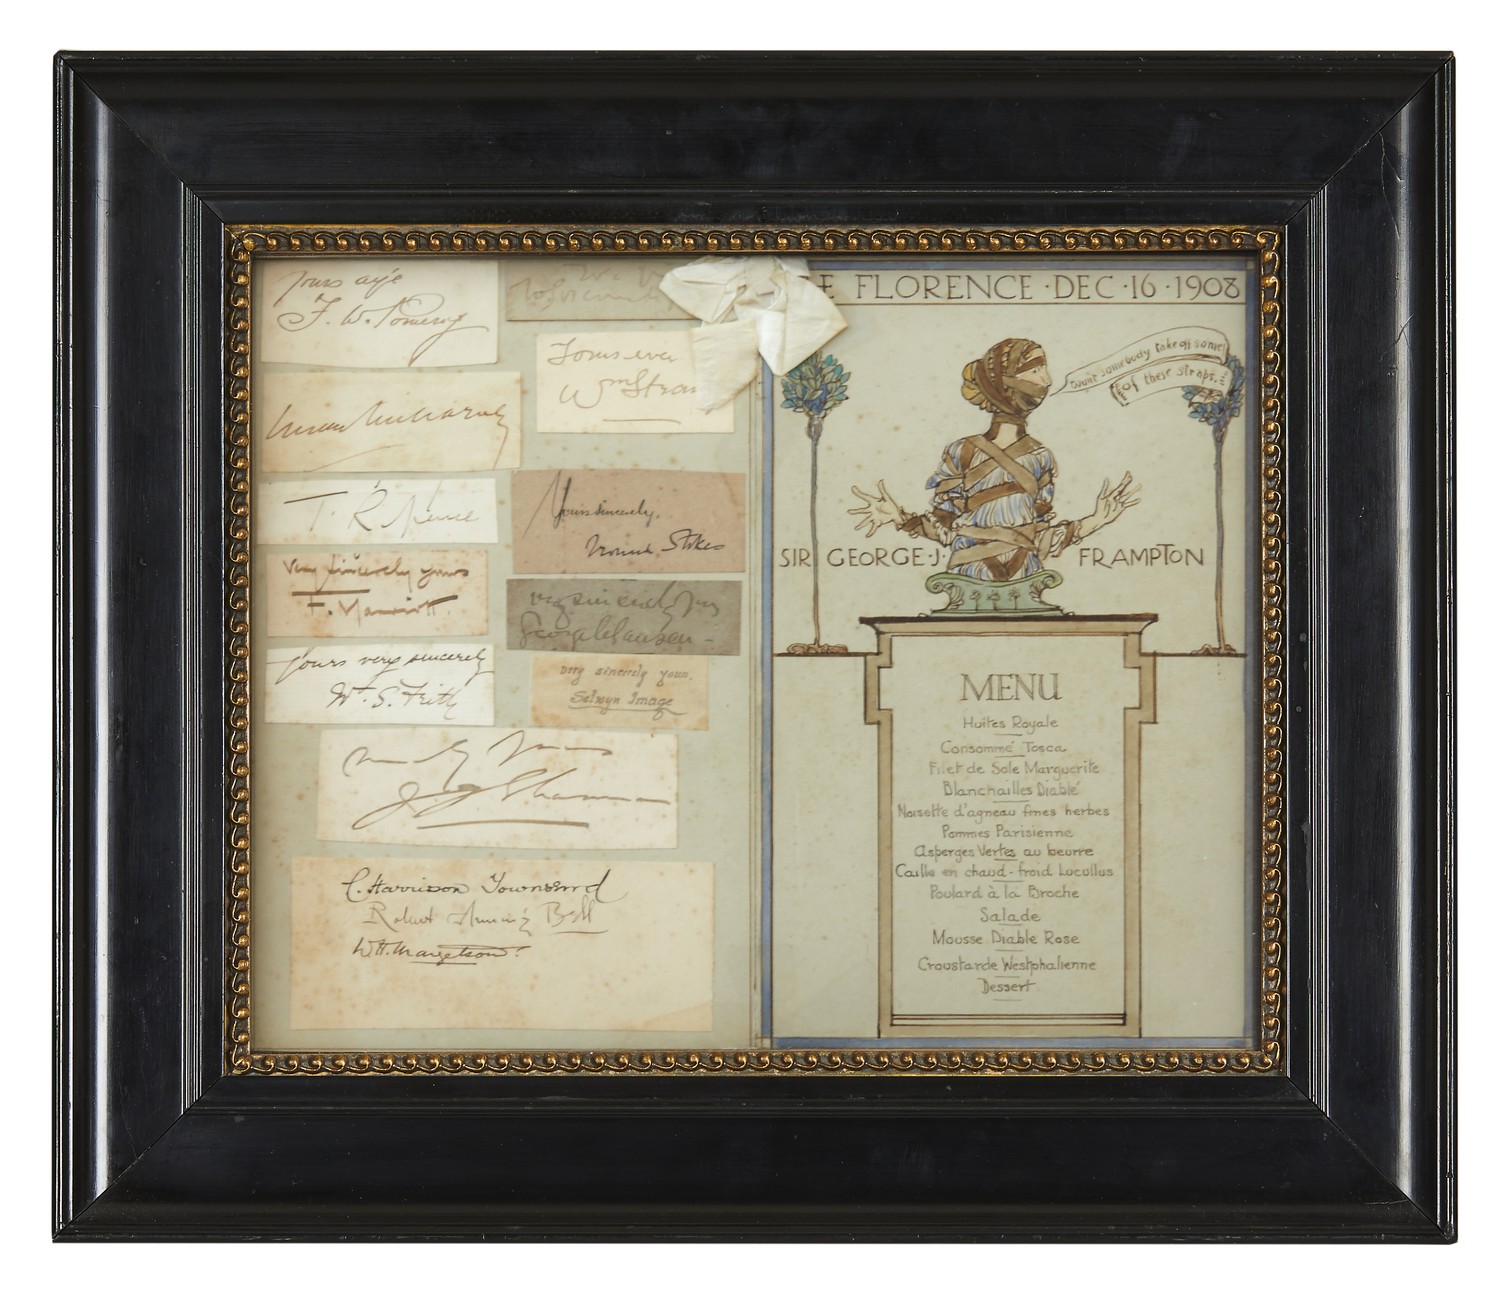 Yours aye
F. W. Pomeroy
Yours ever
Wm Stran
T. R. Spence
Yours sincerely,
Stokes
Very sincerely yours
F. Marriott.
very sincerely yrs
George Clausen -
yours very sincerely
Wm. S. Frith
very sincerely yours.
Selwyn Image
yours
J. J. Shannon
C. Harrison Townsend
Robert Anning Bell
W.H. Margetson.
E FLORENCE · DEC · 16 · 1908
wont somebody take off some
of these straps.
SIR GEORGE · J · FRAMPTON
MENU
Huîtes Royale
Consommé Tosca
Filet de Sole Marguerite
Blanchailles Diablé
Noisette d'agneau fines herbes
Pommes Parisienne
Asperges Vertes au beurre
Caille en chaud-froid Lucullus
Poulard à la Broche
Salade
Mousse Diable Rose
Croustarde Westphalienne
Dessert